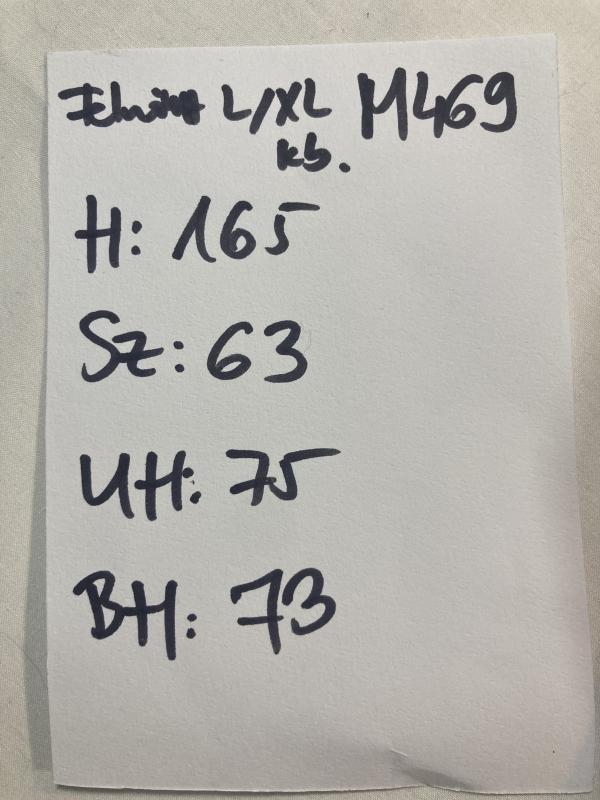 L/XL M469
kb.
H: 165
Sz: 63
UH: 75
BH: 73